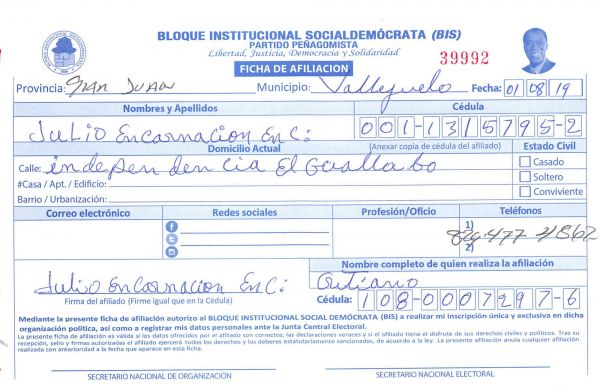 BLOQUE INSTITUCIONAL SOCIALDEMÓCRATA (BIS)
PARTIDO PEÑAGOMISTA
Libertad, Justicia, Democracia y Solidaridad
39992
FICHA DE AFILIACION
Provincia: San Juan Municipio: Vallejuelo Fecha: 01 08 19
Nombres y Apellidos Cédula
Julio Encarnacion Enc: 001-1315795-2
Domicilio Actual (Anexar copia de cédula del afiliado) Estado Civil
Calle: independencia El Guallabo Casado
#Casa / Apt. / Edificio: Soltero
Barrio / Urbanización: Conviviente
Correo electrónico Redes sociales Profesión/Oficio Teléfonos
1) 829 477 4862
2)
Nombre completo de quien realiza la afiliación
Julio Encarnacion Enc:
Firma del afiliado (Firme igual que en la Cédula) Cédula: 108-0007297-6
Mediante la presente ficha de afiliación autorizo al BLOQUE INSTITUCIONAL SOCIAL DEMÓCRATA (BIS) a realizar mi inscripción única y exclusiva en dicha
organización política, así como a registrar mis datos personales ante la Junta Central Electoral.
La presente ficha de afiliación es válida si los datos ofrecidos por el afiliado son correctos, las declaraciones veraces y si el afiliado tiene el disfrute de sus derechos civiles y políticos. Tras su
recepción, sello y firmas autorizadas el afiliado ejercerá todos los derechos y los deberes estatutariamente sancionados, de acuerdo a la ley. La presente afiliación anula cualquier afiliación
realizada con anterioridad a la fecha que aparece en esta ficha.
SECRETARIO NACIONAL DE ORGANIZACIÓN SECRETARIO NACIONAL ELECTORAL